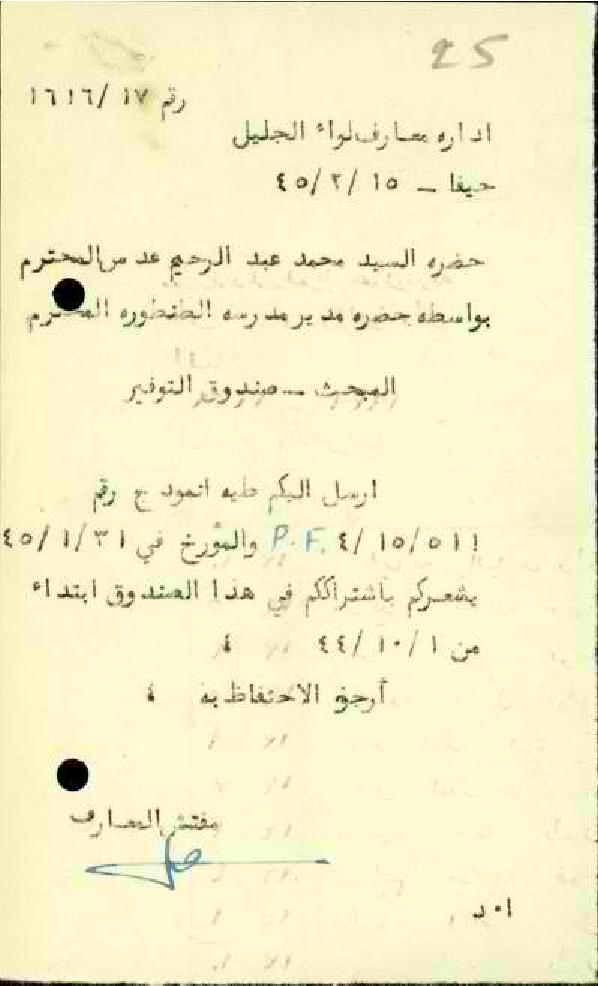 25
رقم ١٧ /١٦١٦
اداره معارف لواء الجليل
حيفا – ١٥ /٢ /٤٥
حضره السيد محمد عبد الرحيم عدس المحترم
بواسطه حضره مدير مدرسه الطنطوره المحترم
المبحث – صندوق التوفير
ارسل اليكم طيه انموذج رقم
P.F. ٤/ ١٥/٥١ والمؤرخ في ٤٥/١/٣١
يشعركم باشتراككم في هذا الصندوق ابتداء
من ١ /١٠ /٤٤ ٠
أرجو الاحتفاظ به ٠
مفتش المعارف
ا٠د